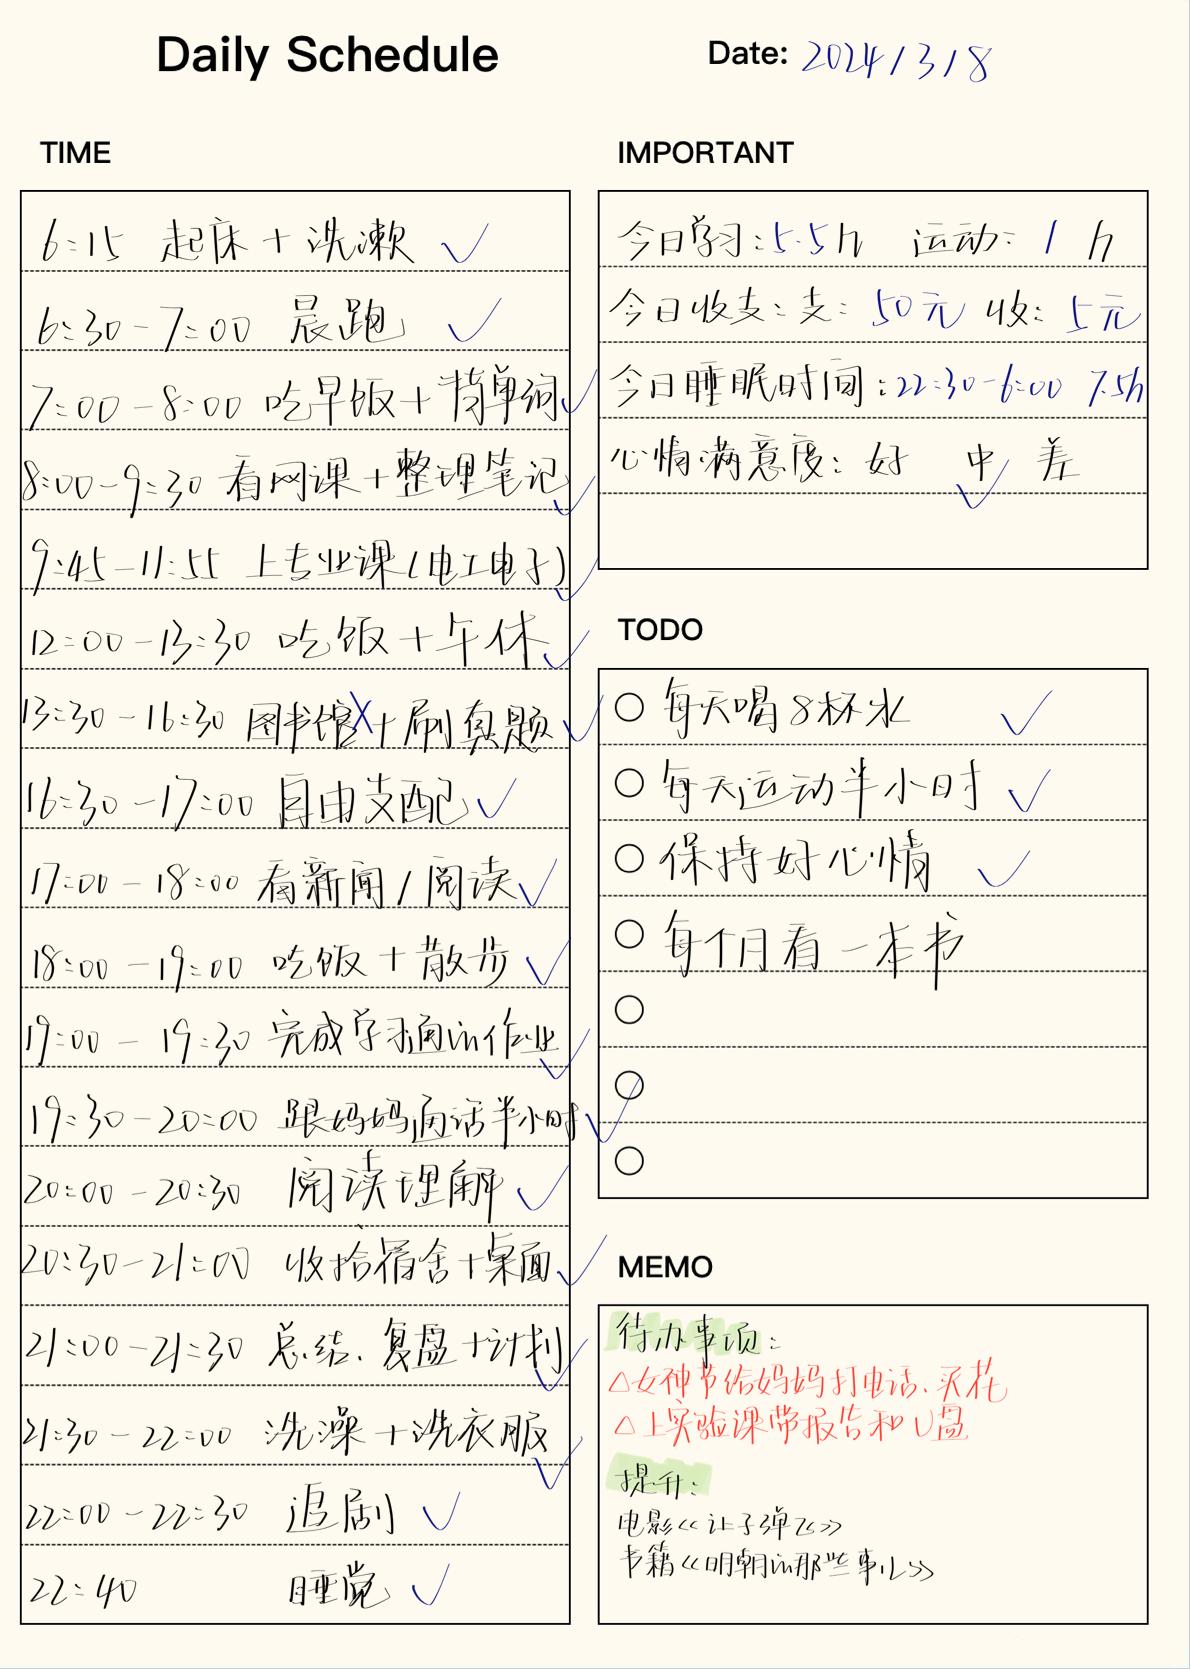 Daily Schedule
Date: 2024/3/8
TIME
6:15 起床+洗漱 ✓
6:30-7:00 晨跑 ✓
7:00-8:00 吃早饭+背单词 ✓
8:00-9:30 看网课+整理笔记 ✓
9:45-11:55 上专业课(电工电子) ✓
12:00-13:30 吃饭+午休 ✓
13:30-16:30 图书馆X+刷真题 ✓
16:30-17:00 自由支配 ✓
17:00-18:00 看新闻/阅读 ✓
18:00-19:00 吃饭+散步 ✓
19:00-19:30 完成学习通的作业 ✓
19:30-20:00 跟妈妈通话半小时 ✓
20:00-20:30 阅读理解 ✓
20:30-21:00 收拾宿舍+桌面 ✓
21:00-21:30 总结、复盘+计划 ✓
21:30-22:00 洗澡+洗衣服 ✓
22:00-22:30 追剧 ✓
22:40 睡觉 ✓
IMPORTANT
今日学习:5.5h 运动:1h
今日收支:支:50元 收:5元
今日睡眠时间:22:30-6:00 7.5h
心情满意度:好 中 ✓ 差
TODO
每天喝8杯水 ✓
每天运动半小时 ✓
保持好心情 ✓
每个月看一本书
MEMO
待办事项:
△女神节给妈妈打电话、买花
△上实验课带报告和U盘
提升:
电影《让子弹飞》
书籍《明朝的那些事儿》